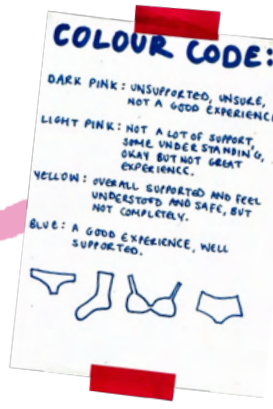 COLOUR CODE:
DARK PINK: UNSUPPORTED, UNSURE,
NOT A GOOD EXPERIENCE
LIGHT PINK: NOT A LOT OF SUPPORT,
SOME UNDERSTANDING,
OKAY BUT NOT GREAT
EXPERIENCE.
YELLOW: OVERALL SUPPORTED AND FEEL
UNDERSTOOD AND SAFE, BUT
NOT COMPLETELY.
BLUE: A GOOD EXPERIENCE, WELL
SUPPORTED.